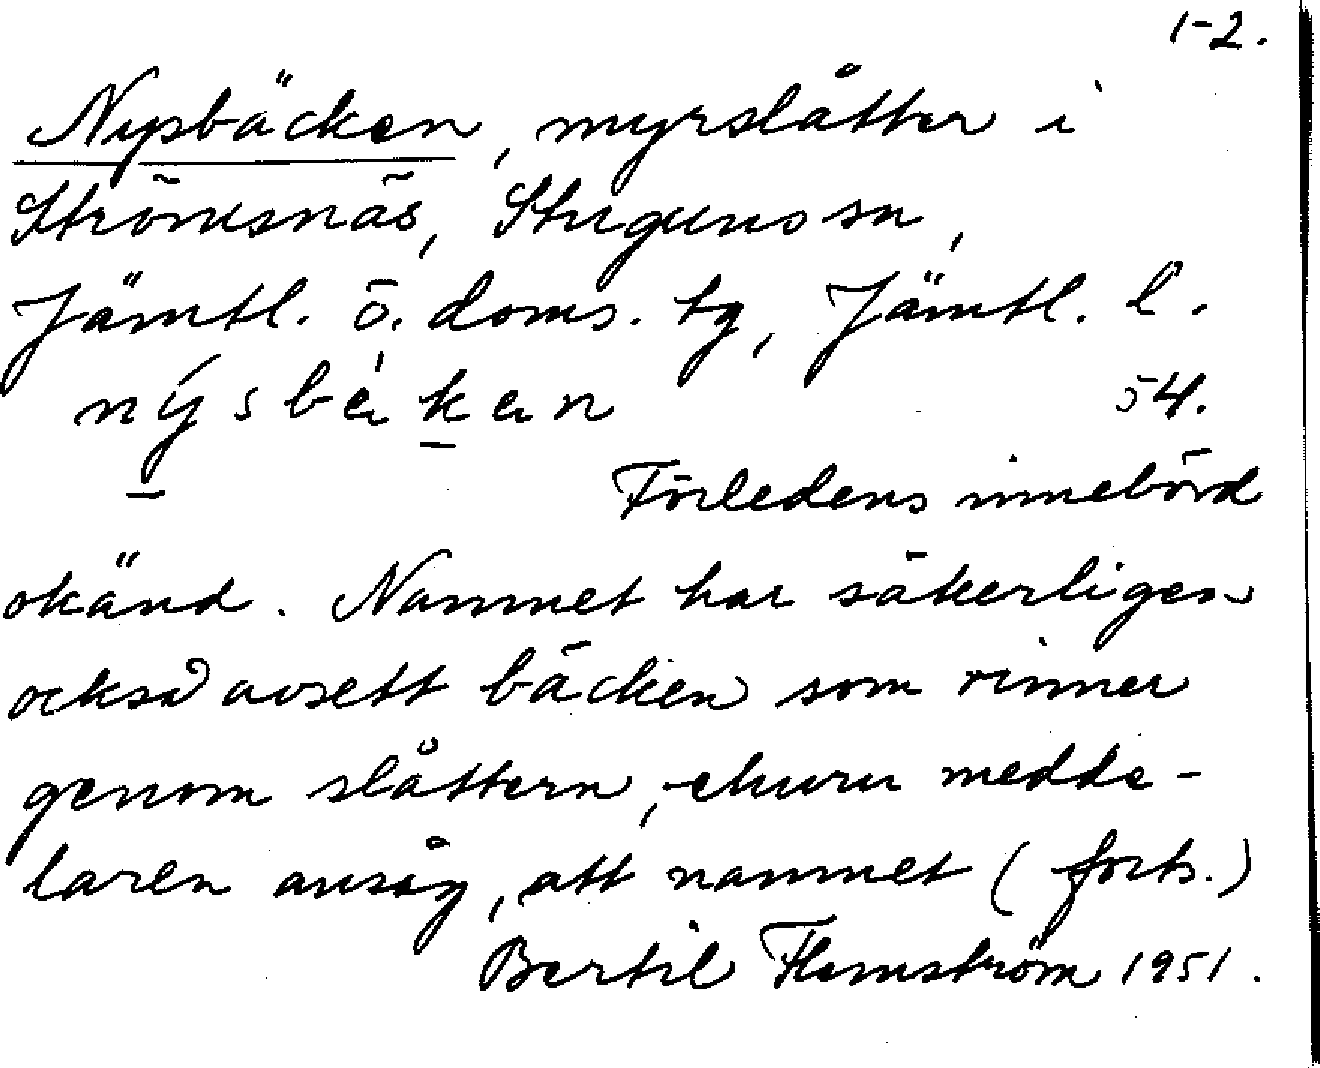 1-2.
Nysbäcken, myrslåtter i
Strömsnäs, Stuguns sn,
Jämtl. ö. doms. tg, Jämtl. l.
nýsbèkan 54.
Förledens innebörd
okänd. Namnet har säkerligen
också avsett bäcken som rinner
genom slåttern, ehuru medde-
laren ansåg, att namnet (forts.)
Bertil Flemström 1951.